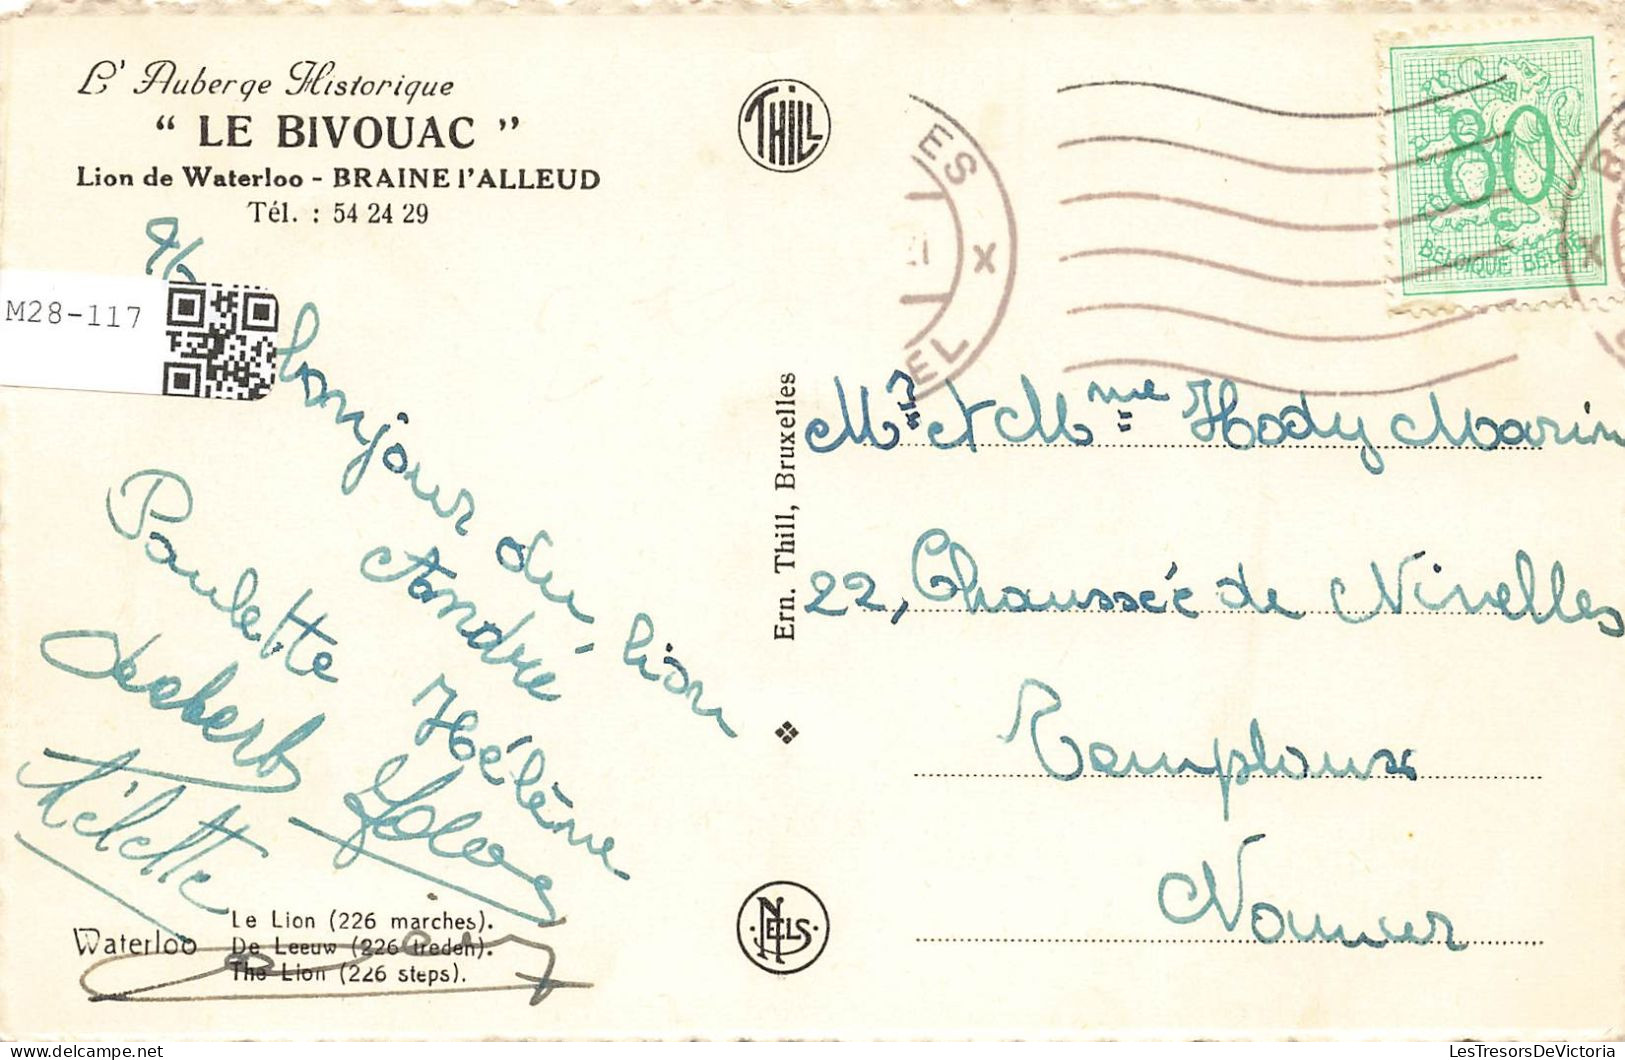 L'Auberge Historique
“ LE BIVOUAC ”
Lion de Waterloo - BRAINE l'ALLEUD
Tél. : 54 24 29
M28-117
bonjour du lion
André
Paulette
Hélène
Waterloo
Le Lion (226 marches).
De Leeuw (226 treden).
The Lion (226 steps).
THILL
Ern. Thill, Bruxelles
NELS
ES
X
EL
80
C
BELGIQUE BELGIË
X
Mr et Mme Hody Marin
22, Chaussée de Nivelles
Temploux
Namur
LesTresorsDeVictoria